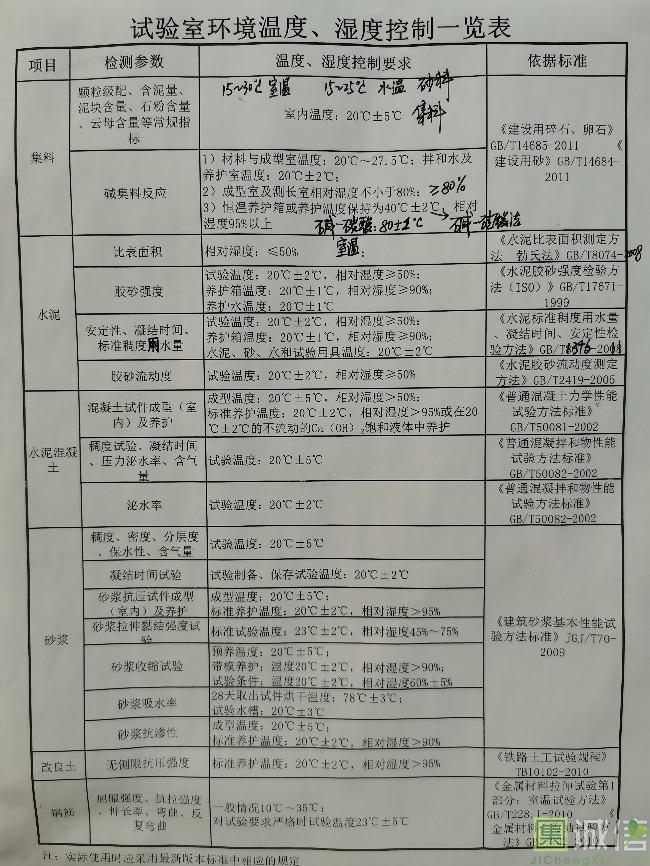 试验室环境温度、湿度控制一览表
项目
检测参数
温度、湿度控制要求
依据标准
集料
颗粒级配、含泥量、
泥块含量、石粉含量
、云母含量等常规指
标
15~30℃ 室温 15~25℃ 水温 砂料
室内温度：20℃±5℃ 集料
《建设用碎石、卵石》
GB/T14685-2011 《
建设用砂》GB/T14684-
2011
碱集料反应
1）材料与成型室温度：20℃~27.5℃；拌和水及
养护室温度：20℃±2℃；
2）成型室及测长室相对湿度不小于80%；≥80%
3）恒温养护箱或养护温度保持为40℃±2℃，相对
湿度95%以上
碱—碳酸：80±2℃
水泥
比表面积
相对湿度：≤50% 室温；
《水泥比表面积测定方
法 勃氏法》GB/T8074-2008
胶砂强度
试验温度：20℃±2℃，相对湿度≥50%；
养护箱温度：20℃±1℃，相对湿度≥90%；
养护水温度：20℃±1℃
《水泥胶砂强度检验方
法（ISO）》GB/T17671-
1999
安定性、凝结时间、
标准稠度用水量
试验温度：20℃±2℃，相对湿度≥50%；
养护箱温度：20℃±1℃，相对湿度≥90%；
水泥、砂、水和试验用具温度：20℃±2℃
《水泥标准稠度用水量
、凝结时间、安定性检
验方法》GB/T
胶砂流动度
试验温度：20℃±2℃，相对湿度≥50%
《水泥胶砂流动度测定
方法》GB/T2419-2005
水泥混凝
土
混凝土试件成型（室
内）及养护
成型温度：20℃±5℃，相对湿度≥50%；
标准养护温度：20℃±2℃，相对湿度>95%或在20
℃±2℃的不流动的Ca（OH）2饱和液体中养护
《普通混凝土力学性能
试验方法标准》
GB/T50081-2002
稠度试验、凝结时间
、压力泌水率、含气
量
试验温度：20℃±5℃
《普通混凝拌和物性能
试验方法标准》
GB/T50082-2002
泌水率
试验温度：20℃±2℃
《普通混凝拌和物性能
试验方法标准》
GB/T50082-2002
砂浆
稠度、密度、分层度
、保水性、含气量
试验温度：20℃±5℃
凝结时间试验
试验制备、保存试验温度：20℃±2℃
砂浆抗压试件成型
（室内）及养护
成型温度：20℃±5℃；
标准养护温度：20℃±2℃，相对湿度>95%
砂浆拉伸黏结强度试
验
标准试验温度：23℃±2℃，相对湿度45%~75%
砂浆收缩试验
预养温度：20℃±5℃；
带模养护：温度20℃±2℃，相对湿度>90%；
试验条件：温度20℃±2℃，相对湿度60%±5%
砂浆吸水率
28天取出试件烘干温度：78℃±3℃；
试验水槽：20℃±3℃
砂浆抗渗性
成型温度：20℃±5℃；
标准养护温度：20℃±2℃，相对湿度>90%
《建筑砂浆基本性能试
验方法标准》JGJ/T70-
2009
改良土
无侧限抗压强度
标准养护温度：20℃±2℃，相对湿度>95%
《铁路土工试验规程》
TB10102-2010
钢筋
屈服强度、抗拉强度
、伸长率、弯曲、反
复弯曲
一般情况10℃~35℃；
对试验要求严格时试验温度23℃±5℃
《金属材料拉伸试验第1
部分：室温试验方法》
GB/T228.1-2010 《
金属材料
注：实际使用时应采用最新版本标准中相应的规定
集诚信
JiChengXin.com